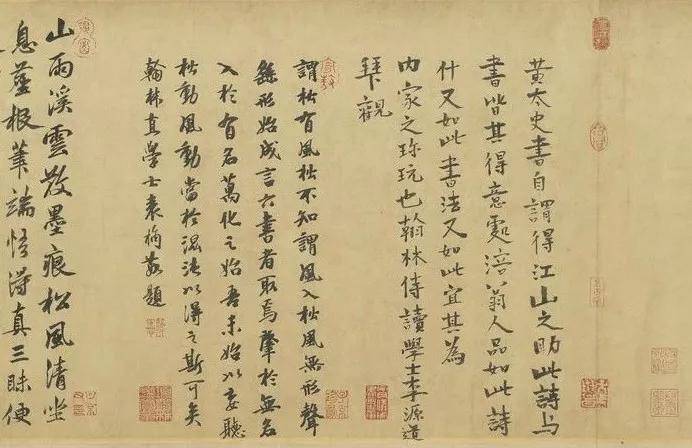 黃太史書自謂得江山之助此詩与
書皆其得意處涪翁人品如此詩
什又如此書法又如此宜其為
内家之珎玩也翰林侍讀學士李源道
拜觀
謂松有風松不知謂風入松風無形聲
繇形始成言六書者取焉肇於無名
入於有名萬化之始吾未始以妄聽
松動風動當於混沌以得之斯可矣
翰林直學士袁桷敬題
山雨溪雲散墨痕松風清坐
息塵根筆端悟得真三昧便